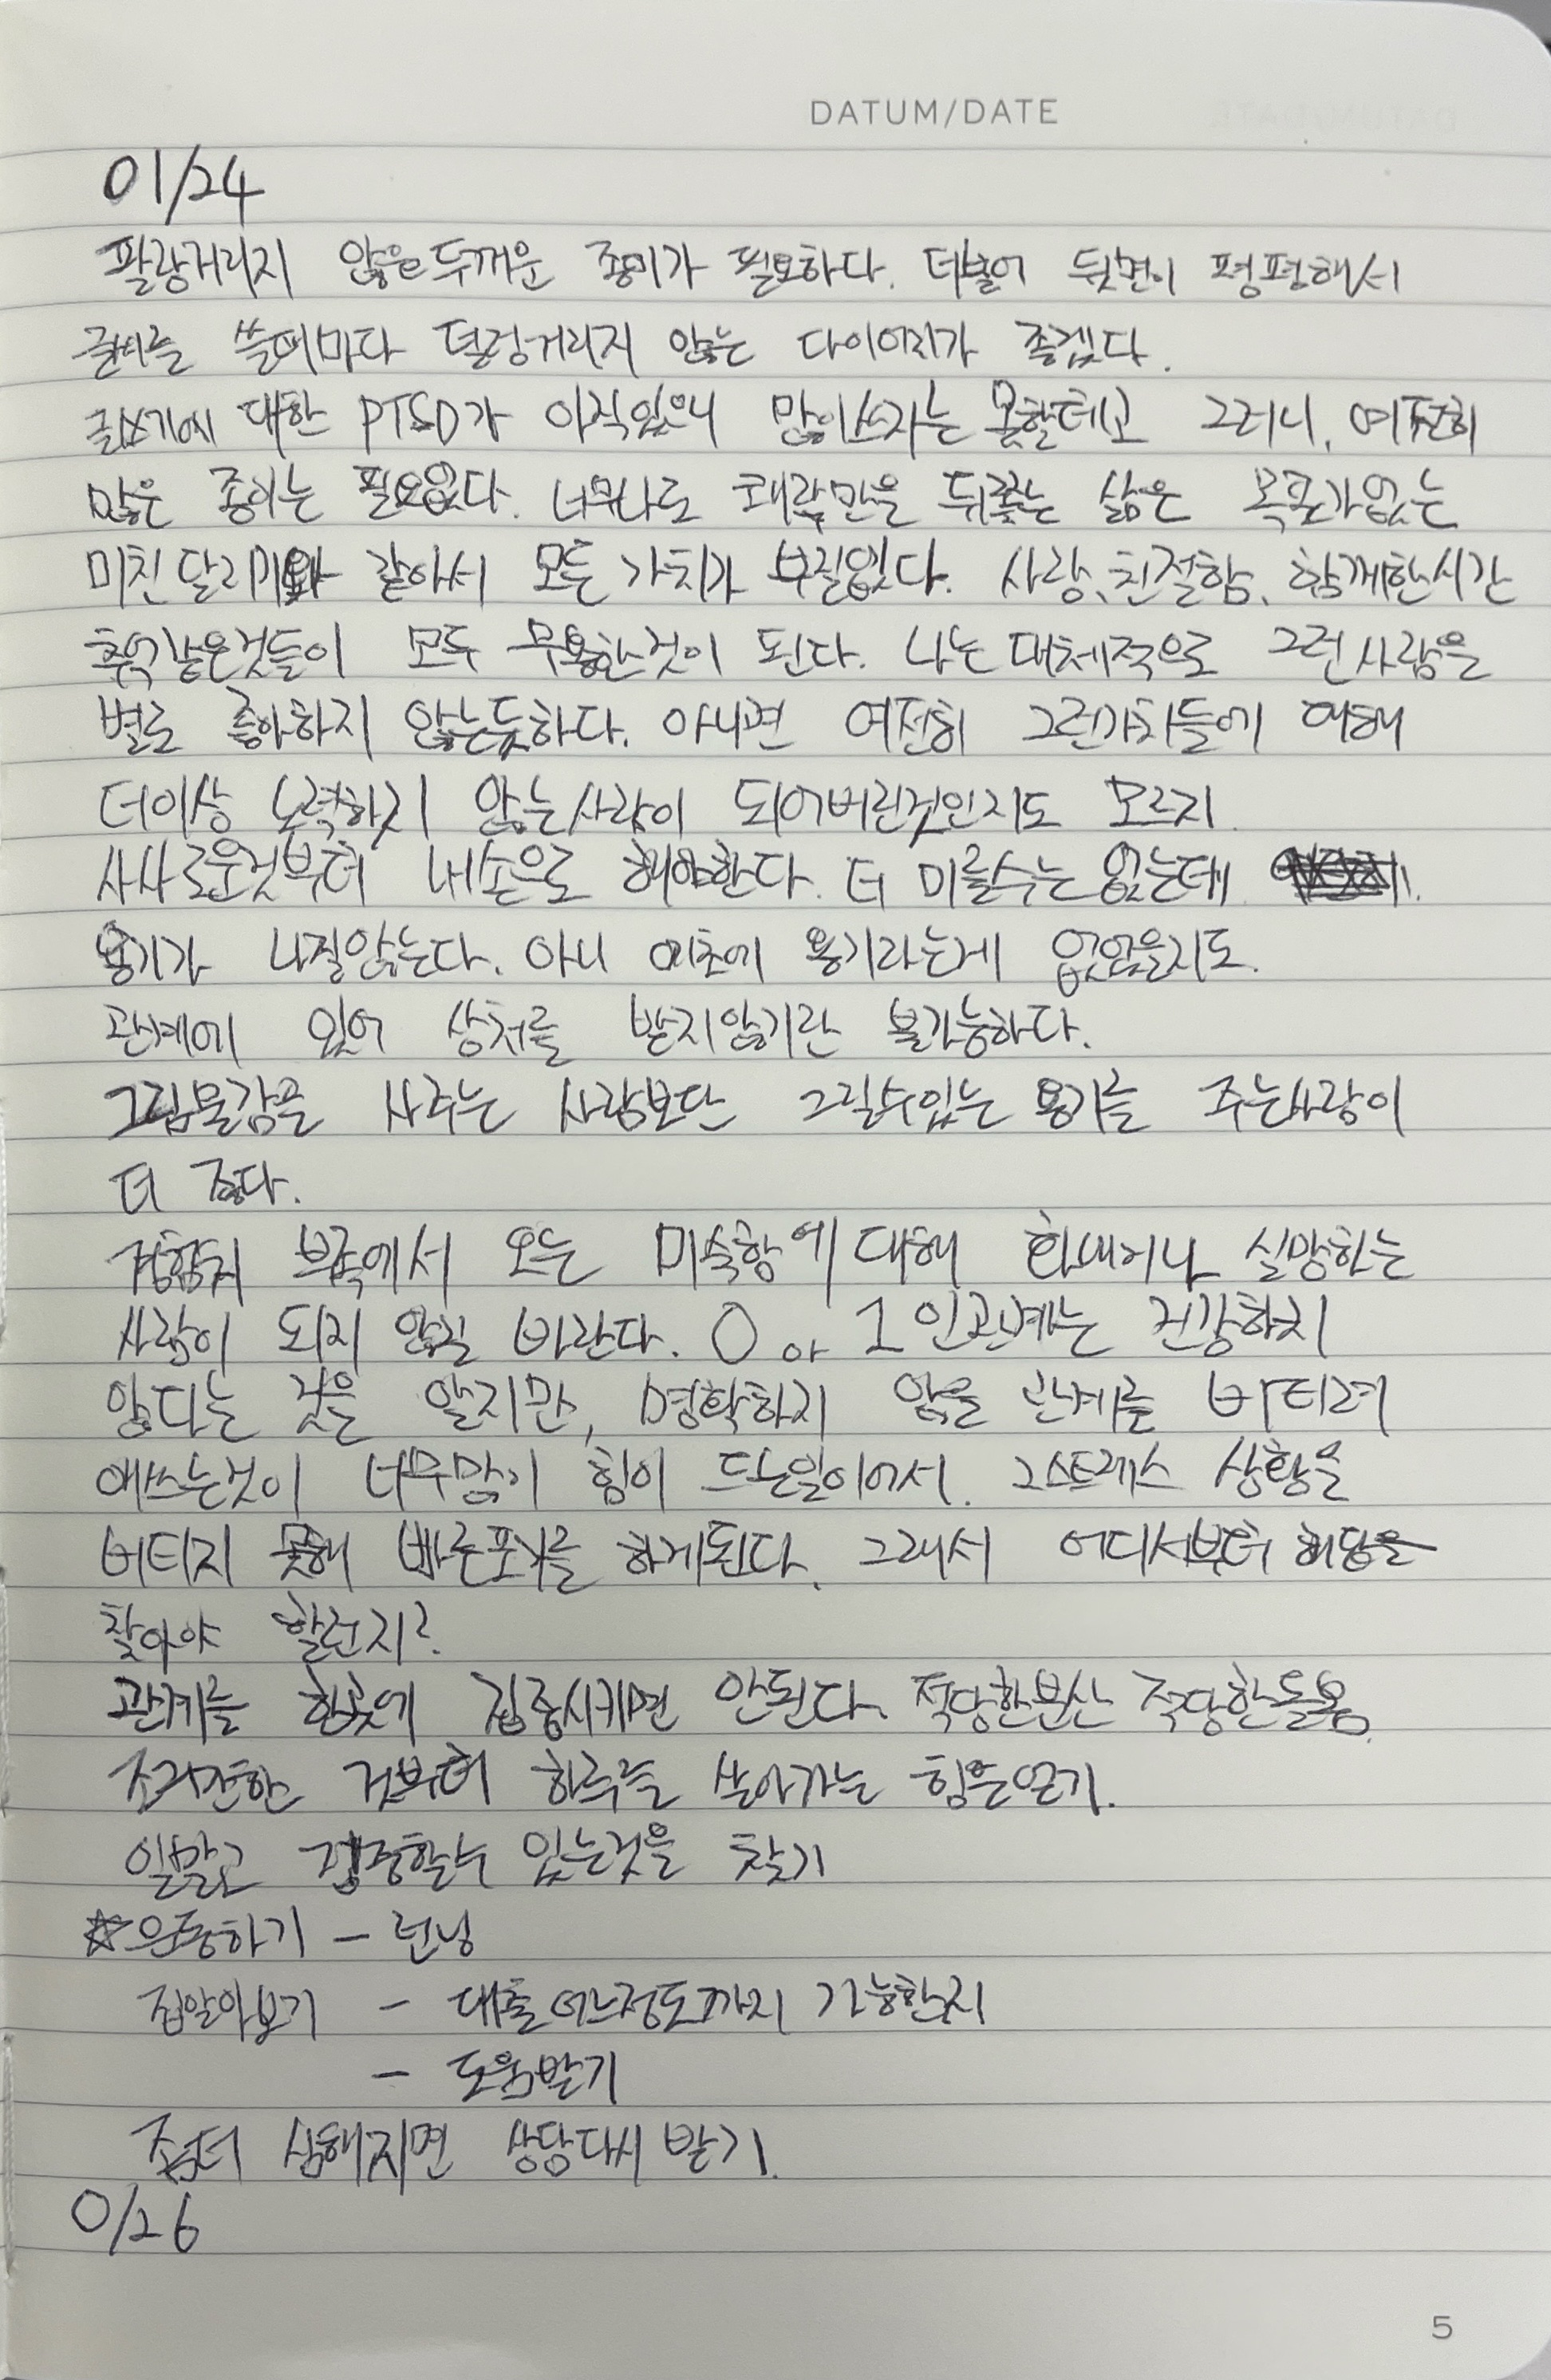 DATUM/DATE
01/24
팔랑거리지 않은 두꺼운 종이가 필요하다. 더불어 뒷면이 평평해서
글씨를 쓸때마다 덜컹거리지 않는 다이어리가 좋겠다.
글쓰기에 대한 PTSD가 아직있으니 많이쓰지는 못할테고 그러니, 여전히
많은 종이는 필요없다. 너무나도 쾌락만을 뒤쫓는 삶은 목표가없는
미친 달리기와 같아서 모든 가치가 부질없다. 사랑, 친절함, 함께한시간
추억같은것들이 모두 무용한것이 된다. 나는 대체적으로 그런 사람을
별로 좋아하지 않는듯하다. 아니면 여전히 그런가치들에 대해
더이상 노력하지 않는사람이 되어버린것인지도 모르지.
사사로운것부터 내손으로 해야한다. 더 미룰수는 없는데
용기가 나질않는다. 아니 애초에 용기라는게 없었을지도.
관계에 있어 상처를 받지않기란 불가능하다.
그림물감을 사주는 사람보단 그릴수있는 용기를 주는사람이
더 좋다.
경험치 부족에서 오는 미숙함에 대해 화내거나 실망하는
사람이 되지 않길 바란다. 0 아 1 인관계는 건강하지
않다는 것을 알지만, 명확하지 않을 관계를 버티려
애쓰는것이 너무많이 힘이 드는일이어서. 그스트레스 상황을
버티지 못해 빠른포기를 하게된다. 그래서 어디서부터 해답을
찾아야 할런지?
관계를 한곳에 집중시키면 안된다. 적당한분산 적당한돌봄.
소소한 것부터 하루를 살아가는 힘을얻기.
일말고 집중할수 있는것을 찾기
☆운동하기 – 런닝
집알아보기 – 대출 어느정도까지 가능한지
– 도움받기
좀더 심해지면 상담다시 받기.
0/26
5